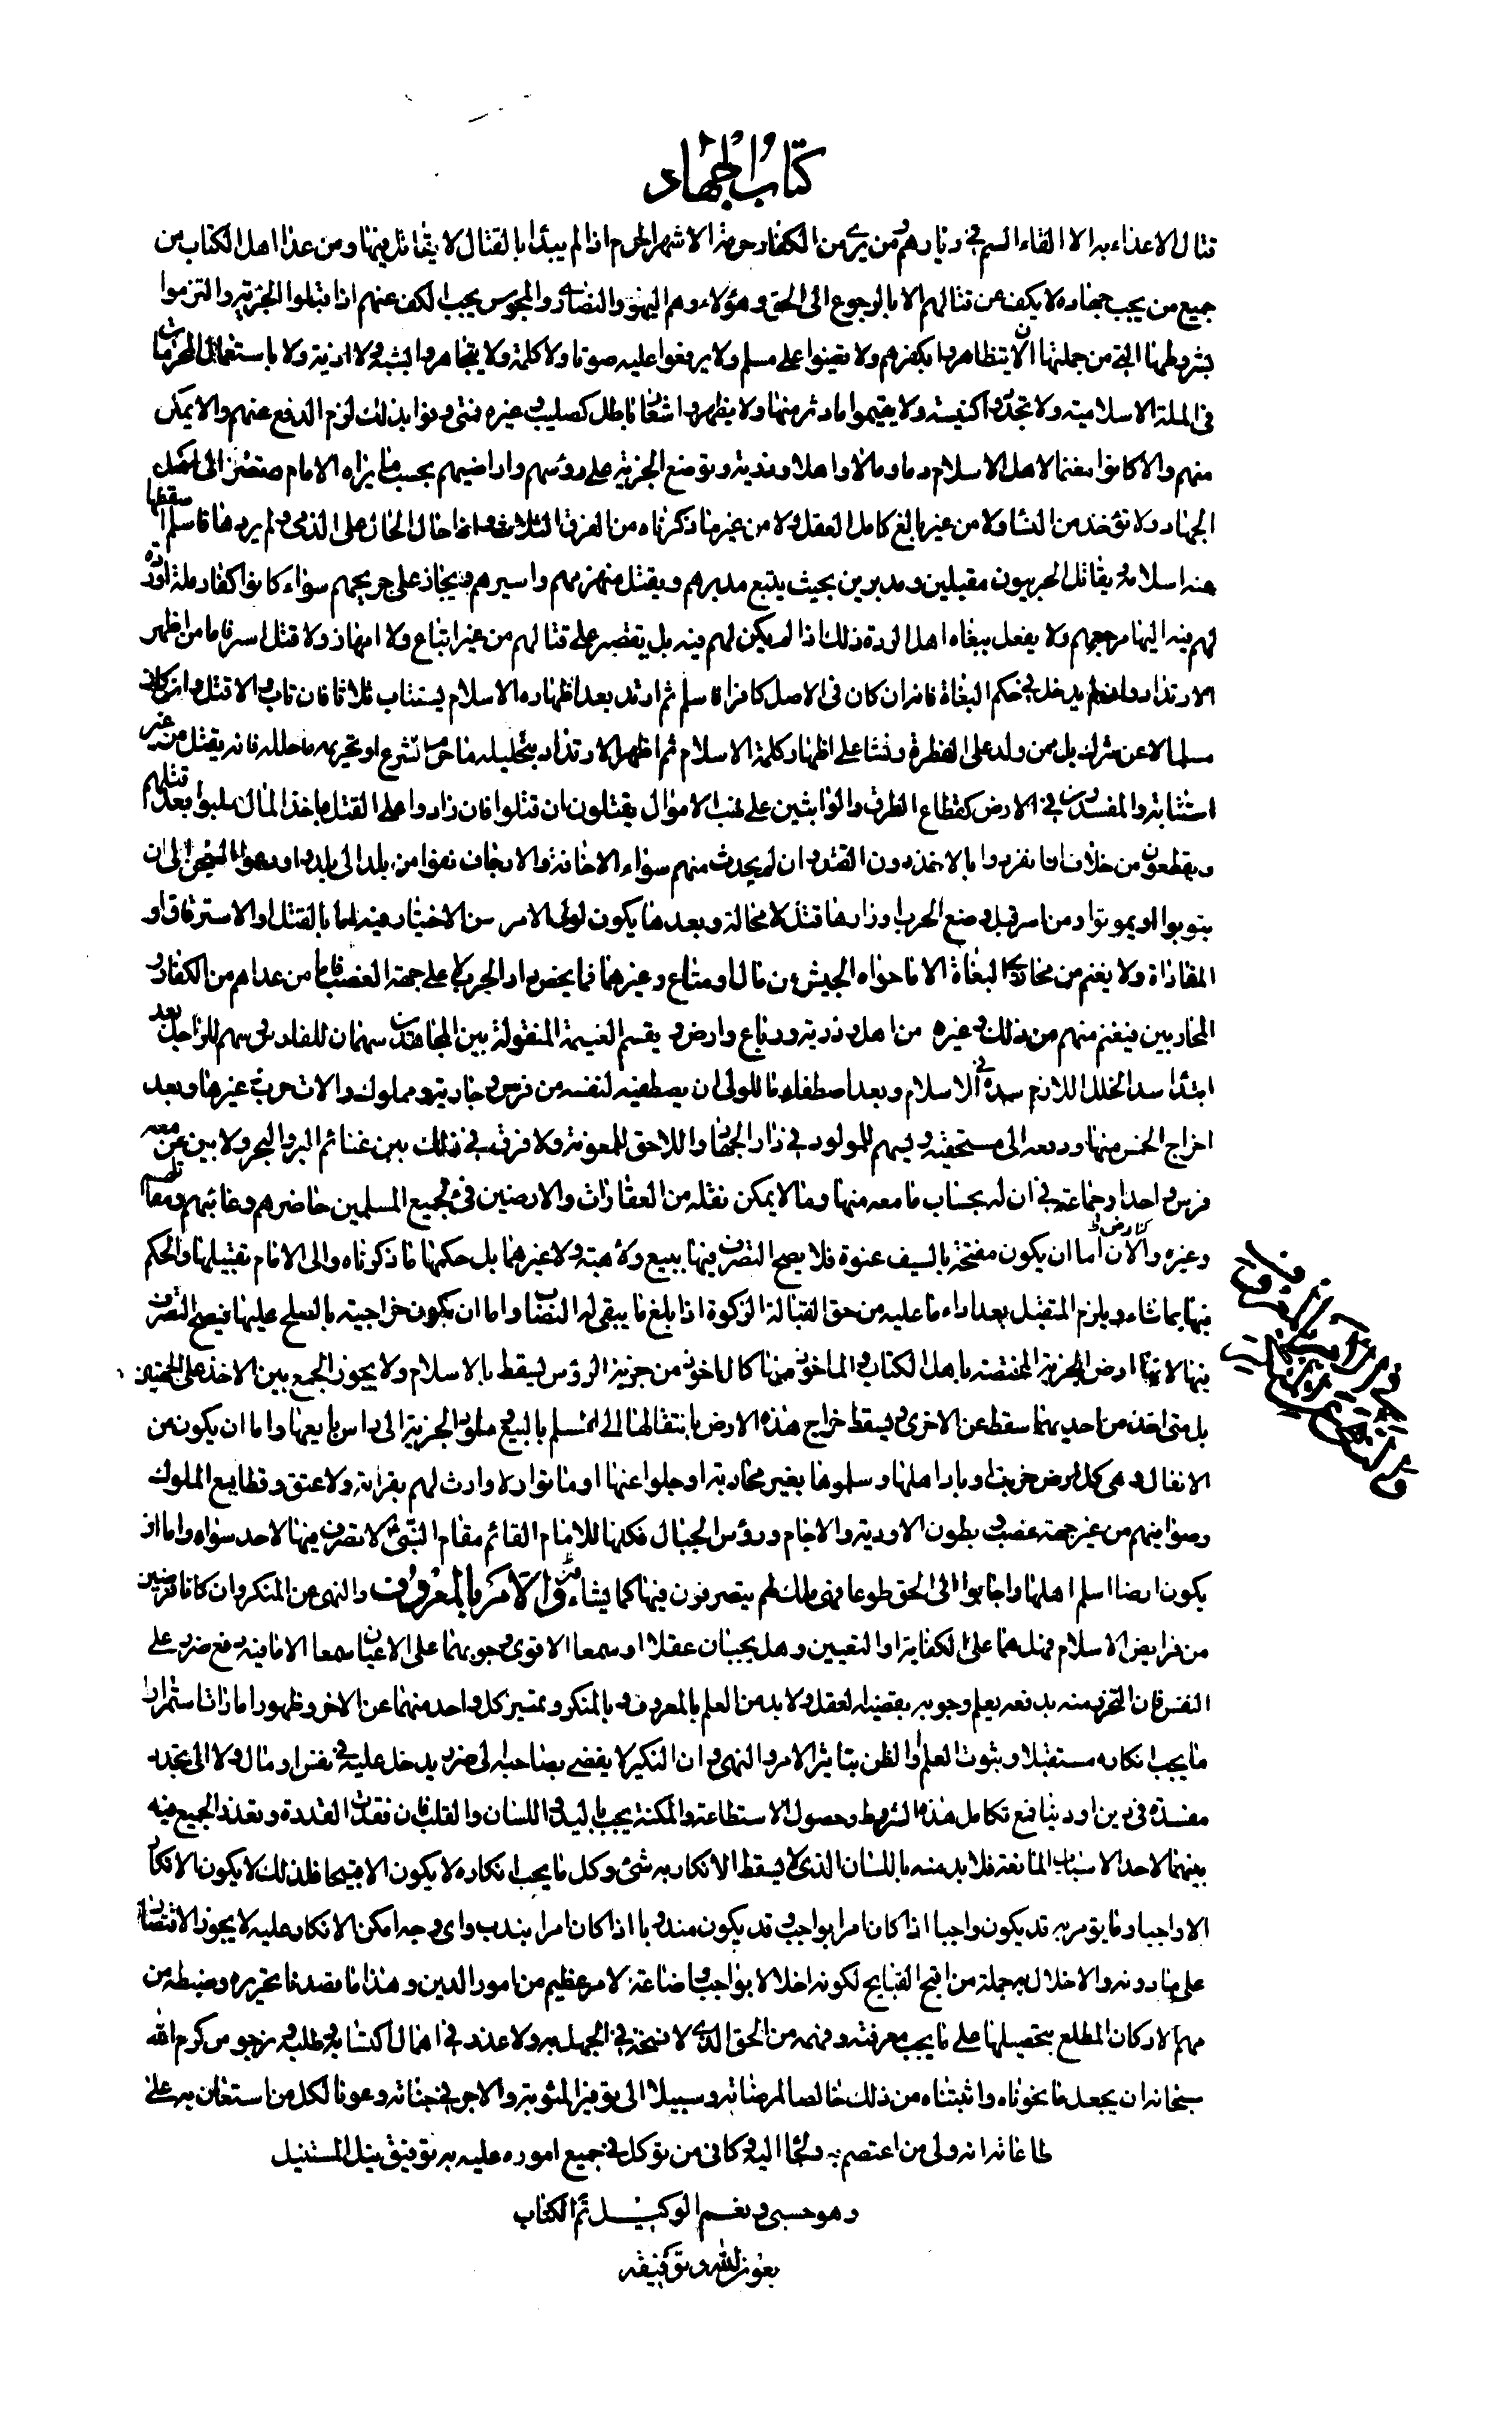 كتاب الجهاد
قتال الاعداء به الا القاء السم في ديارهم ومن يرى من الكفار حرمة الاشهر الحرم اذا لم يبدا بالقتال لا يقاتل فيها ومن عدا اهل الكتاب من
جميع من يجب جهاده لا يكف عن قتالهم الا بالرجوع الى الحق وهؤلاء وهم اليهود والنصارى والمجوس يجب الكف عنهم اذا قبلوا الجزية والتزموا
بشروطها التي من جملتها ان لا يتظاهروا بكفرهم ولا يعينوا على مسلم ولا يرفعوا عليه صوتا ولا كلمة ولا يتجاهروا بسبه ولا اذيته ولا باستعمال المحرمات
في الملة الاسلامية ولا تجدوا كنيسة ولا يقيموا ما دثر منها ولا يظهروا شعار باطل كصليب وغيره فمتى وفوا بذلك لزم الدفع عنهم والا يمكن
منهم والا كانوا مغنما لاهل الاسلام دما ومالا واهلا وذرية وتوضع الجزية على رؤسهم واراضيهم بحسب ما يراه الامام
الجهاد ولا تؤخذ من النساء ولا من غير بالغ كامل العقل ولا من غير من ذكرناه من الفرق الثلاث واذا حال الحال على الذمي ولم يردها فاسلم اسقطها
عنه اسلامه ويقاتل الحربيون مقبلين ومدبرين بحيث يتبع مدبرهم ويقتل منهزمهم واسيرهم ويجاز على جريحهم سواء كانوا كفار ملة او ردة
لهم فيه اليها مرجعهم ولا يفعل ببغاة اهل الردة ذلك اذا لم يكن لهم فيه بل يقتصر على قتالهم من غير اتباع ولا اجهاز ولا قتل اسر فاما من اظهر
الارتداد وان لم يدخل في حكم البغاة فانه ان كان في الاصل كافرا فاسلم ثم ارتد بعد اظهاره الاسلام يستتاب ثلاثا فان تاب والا قتل وان كان
مسلما لا عن شرك بل ممن ولد على الفطرة ونشا على اظهار كلمة الاسلام ثم اظهر الارتداد بتحليله ما حرم الشرع او تحريمه ما حلله فانه يقتل من غير
استتابة والمفسدون في الارض كقطاع الطرق والواثبين على نهب الاموال يقتلون ان قتلوا فان زادوا على القتل باخذ المال صلبوا بعد قتلهم
ويقطعون من خلاف ان تفردوا بالاخذ دون القتل وان لم يحدث منهم سواء الاخافة والارجاف نفوا من بلد الى بلد او دعوا السجن الى ان
يتوبوا او يموتوا ومن اسر قبل وضع الحرب اوزارها قتل لا محالة وبعدها يكون لولي الامر من الاختيار فيه اما بالقتل او الاسترقاق او
المفاداة ولا يغنم من محاربي البغاة الا ما حواه الجيش من مال او متاع وغيرهما فما يخص دار الحرب لا على جهة الغصب فاما من عداهم من الكفار و
المحاربين فيغنم منهم من ذلك وغيره من اهل وذرية ورباع وارض ويقسم الغنيمة المنقولة بين المجاهدين سهمان للفارس وسهم للراجل بعد
ابتدا سد الخلل اللازم سده في الاسلام وبعد اصطفاء ما للولي ان يصطفيه لنفسه من فرس وجارية ومملوك والات حرب وغيرها وبعد
اخراج الخمس منها ودفعه الى مستحقيه ويسهم للمولود في دار الجهاد واللاحق للمعونة ولا فرق في ذلك بين غنائم البر والبحر ولا بين من معه
فرس واحد او جماعة في ان له بحساب ما معه منها وما لا يمكن نقله من العقارات والارضين فيء لجميع المسلمين حاضرهم وغائبهم ومقاتلهم
وغيره والارض اما ان يكون مفتتحة بالسيف عنوة فلا يصح التصرف فيها ببيع ولا هبة ولا غيرهما بل حكمها ما ذكرناه والى الامام تقبيلها والحكم
فيها بما شاء ويلزم المتقبل بعد اداء ما عليه من حق القبالة الزكوة اذا بلغ ما يبقى له النصاب واما ان يكون خراجية بالصلح عليها فيصح التصرف
فيها لانها ارض الجزية المختصة باهل الكتاب والماخوذ منها كالماخوذ من جزية الرؤس يسقط بالاسلام ولا يجوز الجمع بين الاخذ على الجهتين
بل متى اخذ من احديهما سقط عن الاخرى ويسقط خراج هذه الارض بانتقالها الى المسلم بالبيع وتعود الجزية الى راس بايعها واما ان يكون من
الانفال وهي كل ارض خربت او باد اهلها وسلموها بغير محاربة او جلوا عنها او ماتوا ولا وارث لهم بقرابة ولا عتق وقطايع الملوك
وصوافيهم من غير جهة غصب وبطون الاودية والاجام ورؤس الجبال فكلها للامام القائم مقام النبي لا تصرف فيها لاحد سواه واما ان
يكون ارضا اسلم اهلها واجابوا الى الحق طوعا فهي ملك لهم يتصرفون فيها كما يشاءون والامر بالمعروف والنهي عن المنكر وان كانا فرضين
من فرايض الاسلام فهل هما على الكفاية او التعيين وهل يجبان عقلا او سمعا الاقوى وجوبهما على الاعيان سمعا الا ما فيه دفع ضرر على
النفس فان التحرز منه بدفعه يعلم وجوبه بقضية العقل ولا بد من العلم بالمعروف وبالمنكر وتمييز كل واحد منهما عن الاخر وظهور امارات استمرار
ما يجب انكاره مستقبلا وثبوت العلم او الظن بتاثير الامر والنهي وان النكير لا يفضي بصاحبه الى ضرر يدخل عليه في نفس او مال ولا الى تجدد
مفسدة في دين او دنيا فمع تكامل هذه الشروط وحصول الاستطاعة والمكنة يجب باليد واللسان والقلب فان فقدت القدرة وتعذر الجميع فيه
بينهما لاحد الاسباب المانعة فلا بد منه باللسان الذي لا يسقط الانكار به شيء وكل ما يجب انكاره لا يكون الا قبيحا فلذلك لا يكون الانكار
الا واجبا وما يؤمر به قد يكون واجبا اذا كان امرا بواجب وقد يكون مندوبا اذا كان امرا بندب واي وجه امكن الانكار عليه لا يجوز الاقتصار
على ما دونه والاخلال به جملة من اقبح القبايح لكونه اخلالا بواجب واضاعة لامر عظيم من امور الدين وهذا ما قصدنا تحريره وضبطه من
مهم الاركان المطلع بتحصيلها على ما يجب معرفته وفهمه من الحق الذي لا فسحة في الجهل به ولا عذر في اهمال اكتسابه وطلبه ونرجو من كرم الله
سبحانه ان يجعل ما نحوناه واثبتناه من ذلك خالصا لمرضاته وسبيلا الى توفير المثوبة والاجر في جناته وعونا لكل من استعان به على
طاعاته انه ولي من اعتصم به ولجا اليه وكافي من توكل في جميع اموره عليه به توفيق نيل المستنيل
وهو حسبي ونعم الوكيل تم الكتاب
بعون الله وتوفيقه